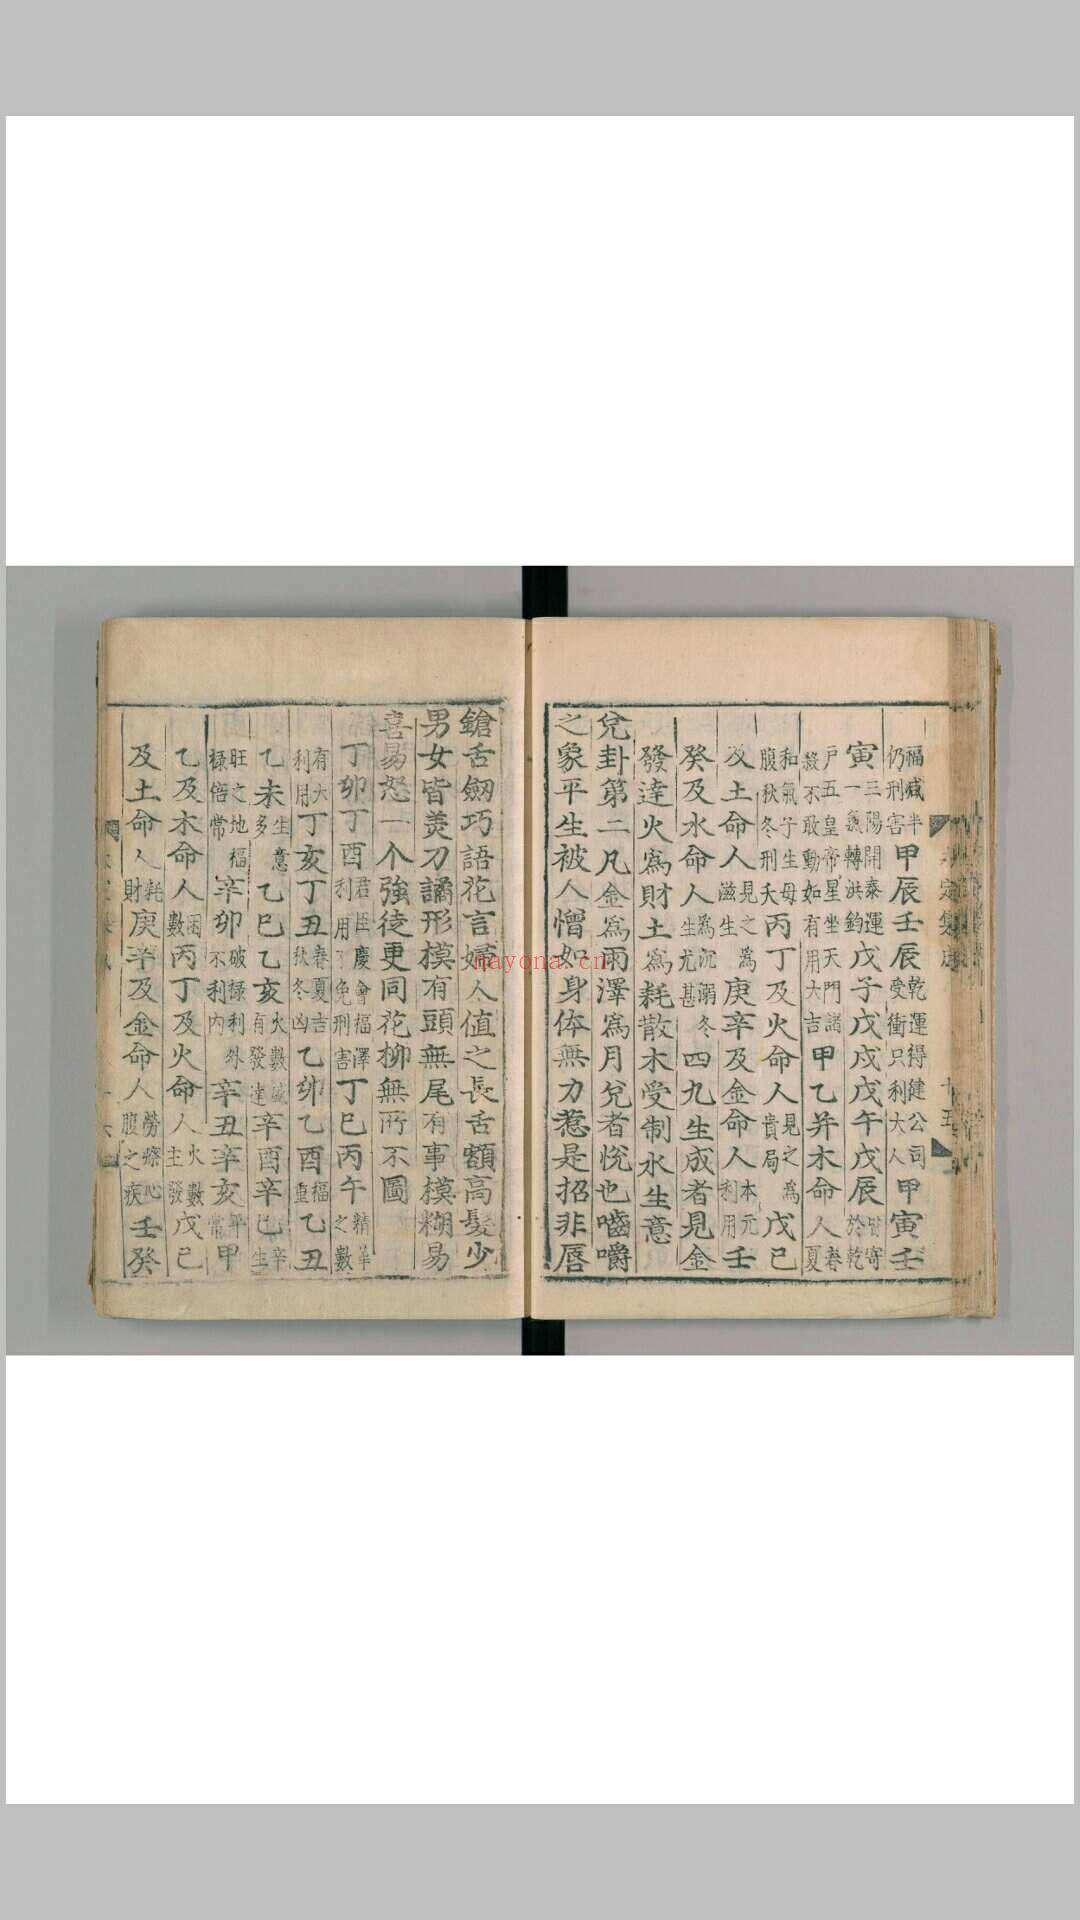 福咸半仍刑害甲辰壬辰乾運得健公司受衝只利大人甲寅壬
寅三陽開泰運一氣轉洪鈞戊子戊戌戊午戊辰
户五皇帝星坐天門諸殺不敢動如有用大吉甲乙并木命人春夏
和氣子生母腹秋冬刑夭丙丁及火命人見之為貴局戊己
及土命人見之為滋生庚辛及金命人本元利用壬
癸及水命人為沉溺冬生尤甚四九生成者見金
發達火為財土為耗散木受制水生意
兌卦第二凡金為雨澤為月兌者悅也嚙嚼
之象平生被人憎如身体無力惹是招非唇
鎗舌劒巧語花言婦人值之長舌額高髮少
男女皆美刀譎形模有頭無尾有事模糊易
喜易怒一个強徒更同花柳無所不圖
丁卯丁酉君臣慶會福澤利用免刑害丁巳丙午精華之數
有大利用丁亥丁丑春夏吉秋冬凶乙卯乙酉福重乙丑
乙未生意多乙巳乙亥火數減有發達辛酉辛巳
旺之地福祿倍常辛卯破祿利外不利内辛丑辛亥平常甲
乙及木命人困數丙丁及火命人火數主發戊己
及土命人耗財庚辛及金命人勞瘵心腹之疾壬癸
nayona.cn